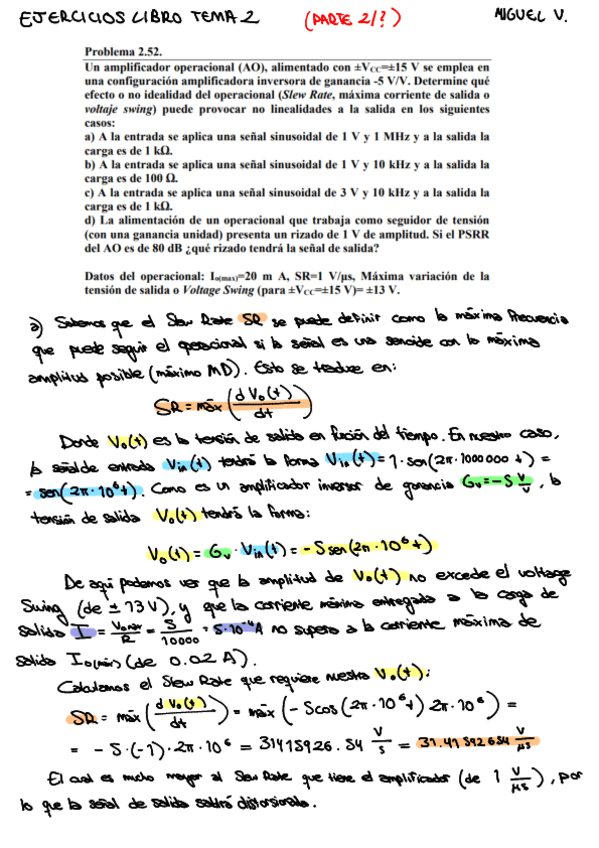 EJERCICIOS LIBRO TEMA 2 (PARTE 2/?) MIGUEL V.
Problema 2.52.
Un amplificador operacional (AO), alimentado con ±VCC=±15 V se emplea en
una configuración amplificadora inversora de ganancia -5 V/V. Determine qué
efecto o no idealidad del operacional (Slew Rate, máxima corriente de salida o
voltaje swing) puede provocar no linealidades a la salida en los siguientes
casos:
a) A la entrada se aplica una señal sinusoidal de 1 V y 1 MHz y a la salida la
carga es de 1 kΩ.
b) A la entrada se aplica una señal sinusoidal de 1 V y 10 kHz y a la salida la
carga es de 100 Ω.
c) A la entrada se aplica una señal sinusoidal de 3 V y 10 kHz y a la salida la
carga es de 1 kΩ.
d) La alimentación de un operacional que trabaja como seguidor de tensión
(con una ganancia unidad) presenta un rizado de 1 V de amplitud. Si el PSRR
del AO es de 80 dB ¿qué rizado tendrá la señal de salida?
Datos del operacional: Io(max)=20 m A, SR=1 V/µs, Máxima variación de la
tensión de salida o Voltage Swing (para ±VCC=±15 V)= ±13 V.
a) Sabemos que el Slew Rate SR se puede definir como la máxima frecuencia
que puede seguir el operacional si la señal es una senoide con la máxima
amplitud posible (máximo MD). Esto se traduce en:
SR = máx (d Vo(t) / dt)
Donde Vo(t) es la tensión de salida en función del tiempo. En nuestro caso,
la señal de entrada Vin(t) tendrá la forma Vin(t) = 1·sen(2π·1000000 t) =
= sen(2π·10⁶t). Como es un amplificador inversor de ganancia Gv=-5 V/V, la
tensión de salida Vo(t) tendrá la forma:
Vo(t) = Gv · Vin(t) = -5 sen(2π·10⁶t)
De aquí podemos ver que la amplitud de Vo(t) no excede el voltage
swing (de ± 13 V), y que la corriente máxima entregada a la carga de
salida I = Vomax/R = 5/10000 = 5·10⁻⁴A no supera a la corriente máxima de
salida Io(máx) (de 0.02 A).
Calculamos el Slew Rate que requiere nuestra Vo(t):
SR = máx (d Vo(t) / dt) = máx (-5cos(2π·10⁶t) 2π·10⁶) =
= -5·(-1)·2π·10⁶ = 31415926.54 V/s = 31.41592654 V/µs
El cual es mucho mayor al Slew Rate que tiene el amplificador (de 1 V/µs), por
lo que la señal de salida saldrá distorsionada.